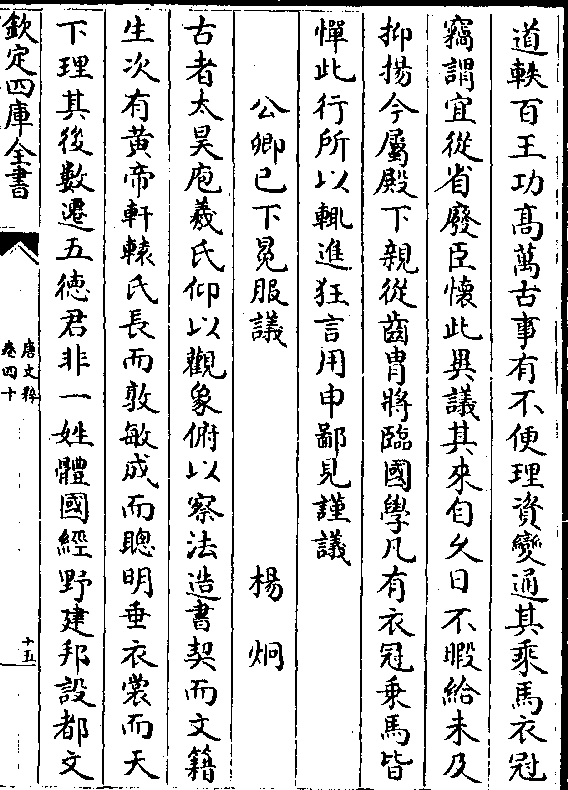 道軼百王功髙萬古事有不便理資變通其乘馬衣冠
竊謂宜從省廢臣懷此異議其來自乆日不暇給未及
抑揚今屬殿下親從齒胄將臨國學凡有衣冠乗馬皆
憚此行所以輒進狂言用申鄙見謹議
公卿已下冕服議　楊炯
古者太昊庖羲氏仰以觀象俯以察法造書契而文籍
生次有黄帝軒轅氏長而敦敏成而聰明垂衣裳而天
下理其後數遷五徳君非一姓體國經野建邦設都文
欽定四庫全書
唐文粹
卷四十
十五